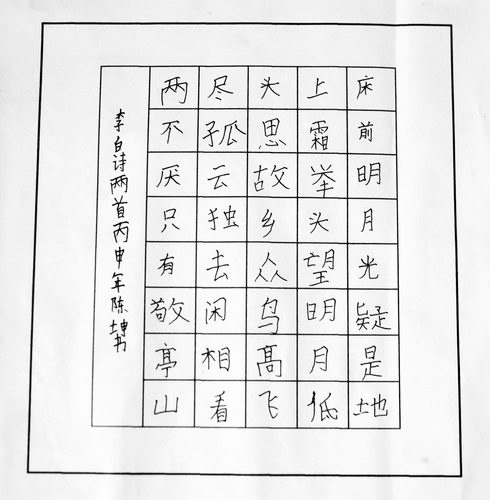 床前明月光疑是地
上霜举头望明月低
头思故乡众鸟高飞
尽孤云独去闲相看
两不厌只有敬亭山
李白诗两首丙申年陈坤书